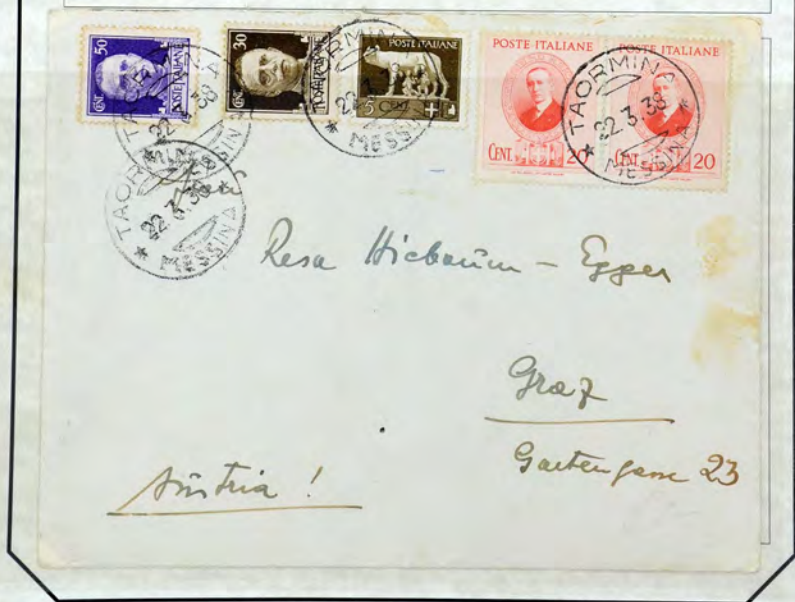 CENT. 50
POSTE ITALIANE
CENT. 30
POSTE ITALIANE
POSTE ITALIANE
5 CENT.
POSTE ITALIANE
CENT. 20
POSTE ITALIANE
CENT. 20
TAORMINA
22.3.38
* MESSINA *
TAORMINA
22.3.38
* MESSINA
TAORMINA
22.3.38
* MESSINA *
TAORMINA
22.3.38
* MESSINA
Resa Hiebaum - Egger
Graz
Gartengasse 23
Austria !